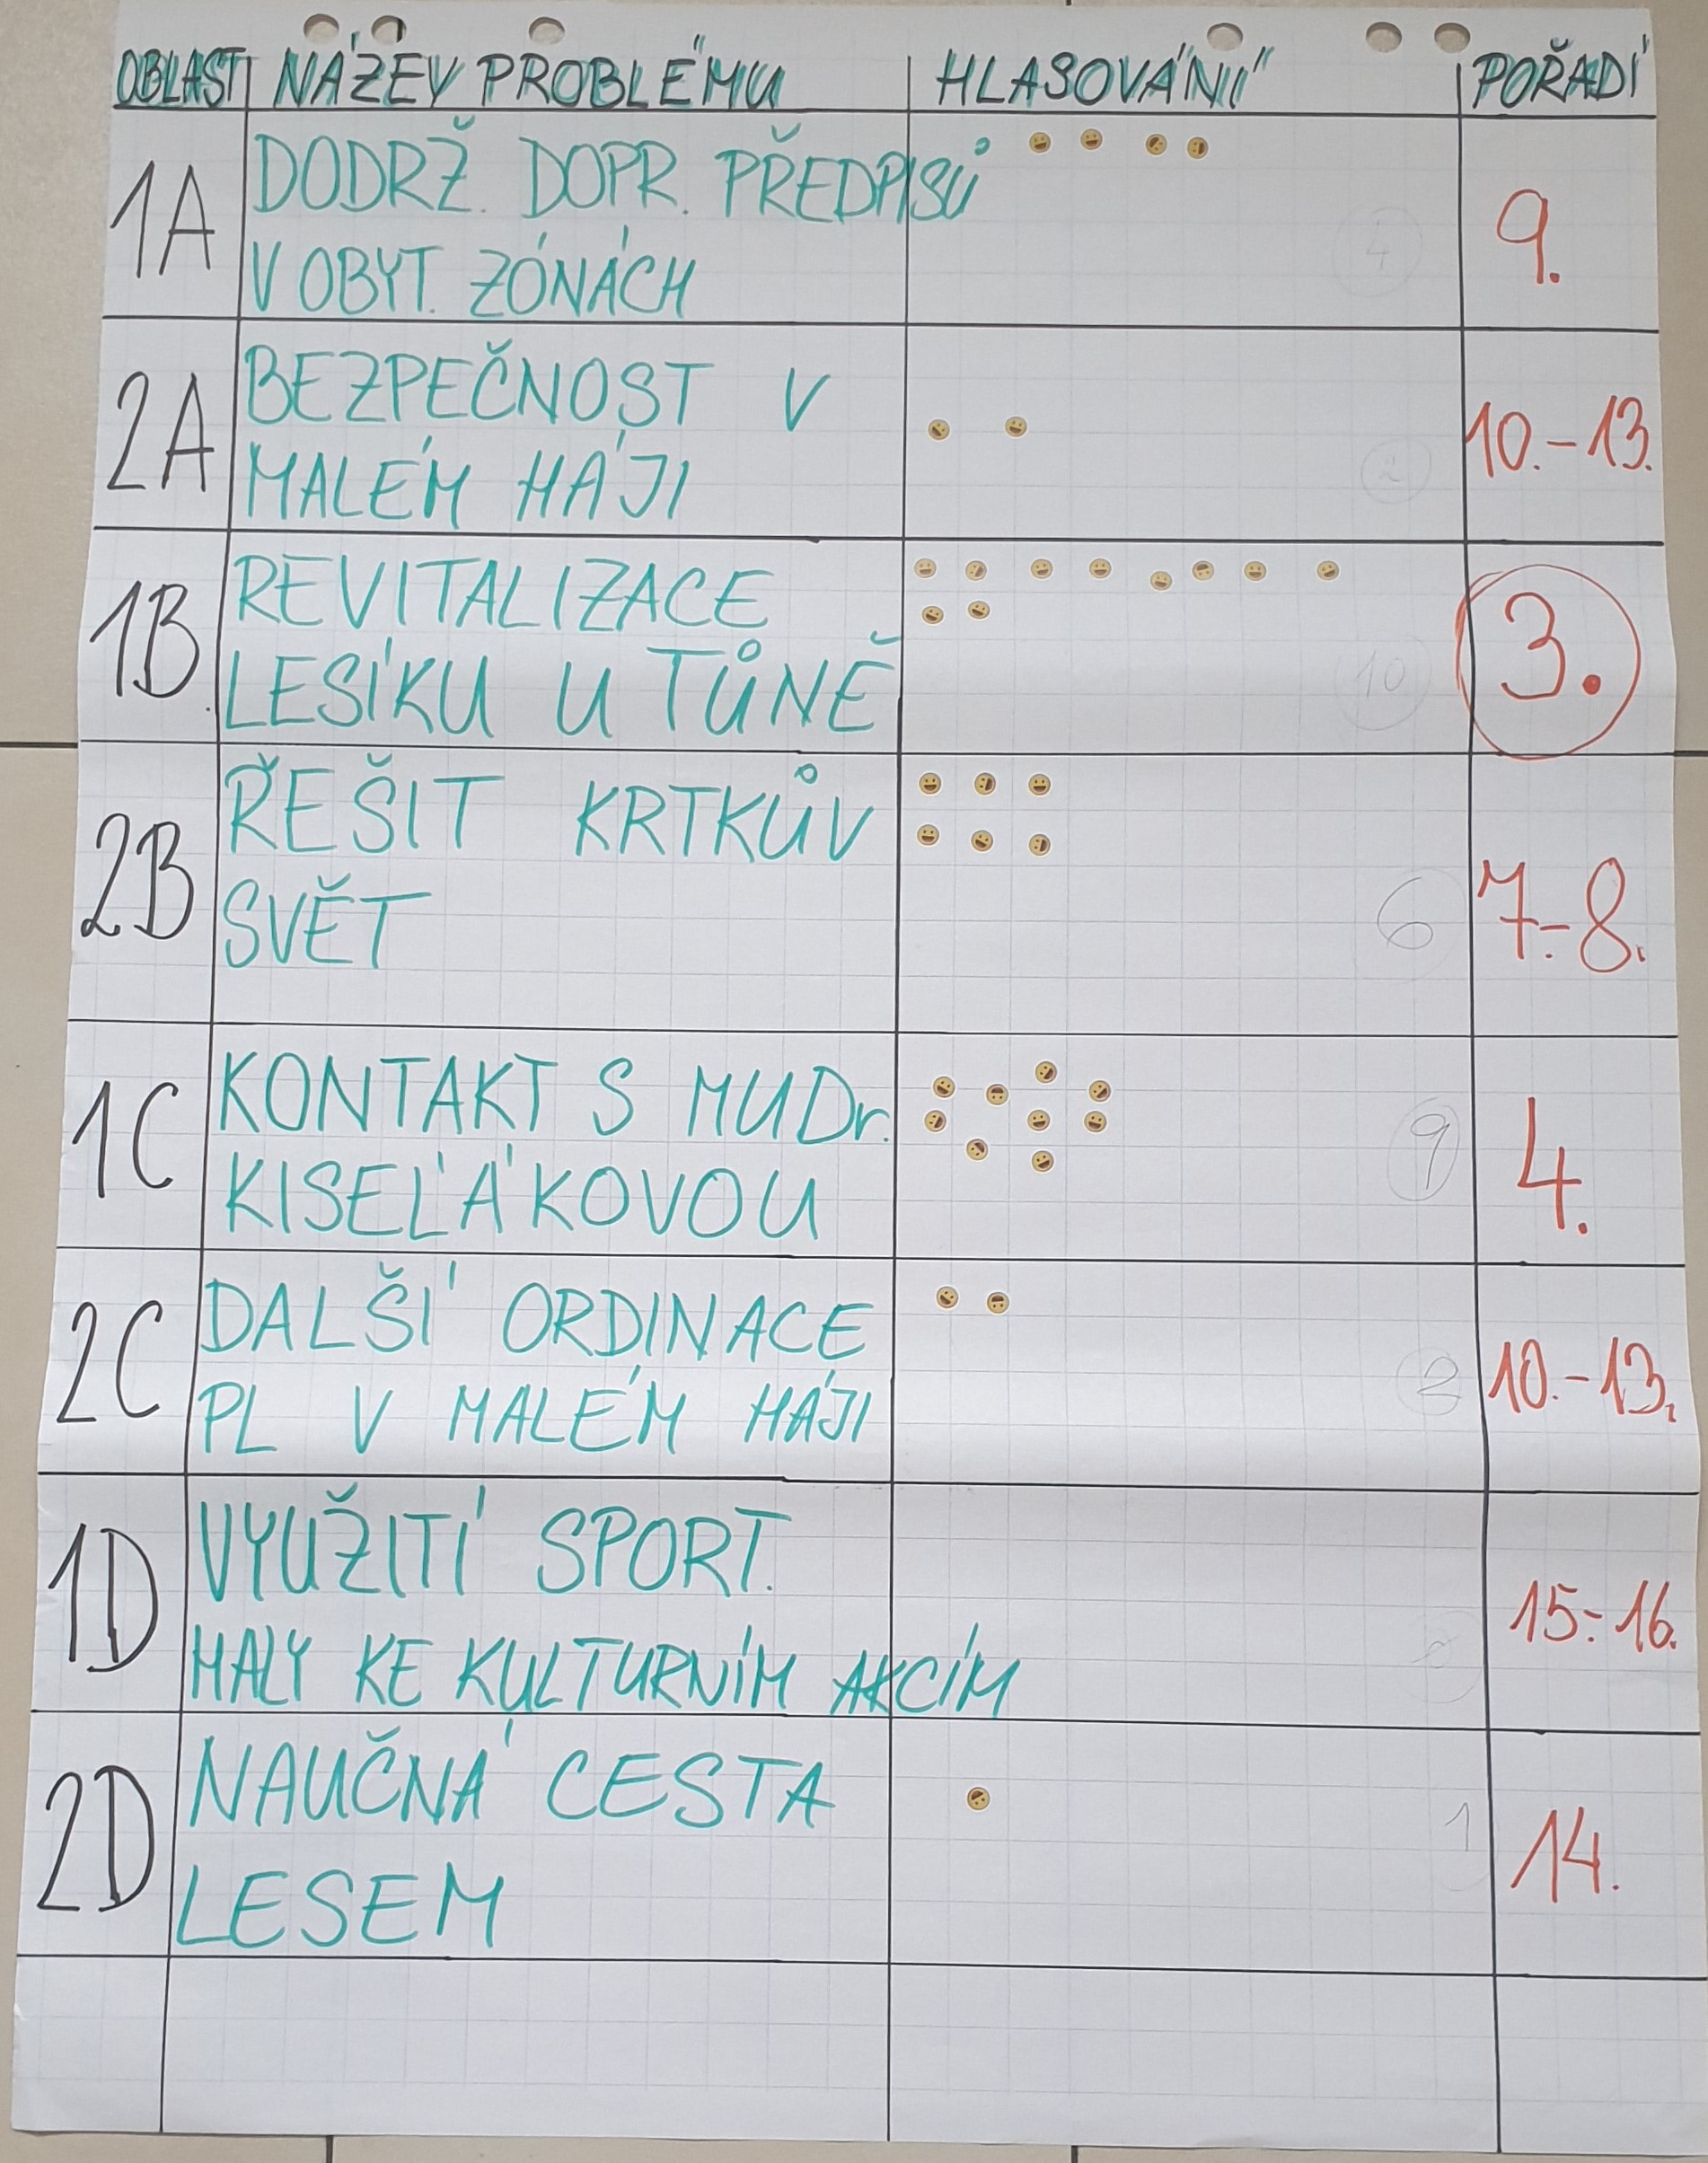 OBLAST NÁZEV PROBLÉMU HLASOVÁNÍ POŘADÍ
1A DODRŽ. DOPR. PŘEDPISŮ 4 9.
V OBYT. ZÓNÁCH
2A BEZPEČNOST V 2 10.-13.
MALÉM HÁJI
1B REVITALIZACE 10 3.
LESÍKU U TŮNĚ
2B ŘEŠIT KRTKŮV 6 7.-8.
SVĚT
1C KONTAKT S MUDr. 9 4.
KISEĽÁKOVOU
2C DALŠÍ ORDINACE 2 10.-13.
PL V MALÉM HÁJI
1D VYUŽITÍ SPORT. 0 15.-16.
HALY KE KULTURNÍM AKCÍM
2D NAUČNÁ CESTA 1 14.
LESEM